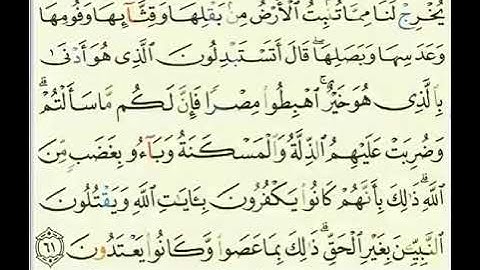 يُخْرِجْ لَنَا مِمَّا تُنۢبِتُ ٱلْأَرْضُ مِنۢ بَقْلِهَا وَقِثَّآئِهَا وَفُومِهَا
وَعَدَسِهَا وَبَصَلِهَا ۖ قَالَ أَتَسْتَبْدِلُونَ ٱلَّذِى هُوَ أَدْنَىٰ
بِٱلَّذِى هُوَ خَيْرٌ ۚ ٱهْبِطُوا۟ مِصْرًا فَإِنَّ لَكُم مَّا سَأَلْتُمْ ۗ
وَضُرِبَتْ عَلَيْهِمُ ٱلذِّلَّةُ وَٱلْمَسْكَنَةُ وَبَآءُو بِغَضَبٍ مِّنَ
ٱللَّهِ ۗ ذَٰلِكَ بِأَنَّهُمْ كَانُوا۟ يَكْفُرُونَ بِـَٔايَـٰتِ ٱللَّهِ وَيَقْتُلُونَ
ٱلنَّبِيِّـۧنَ بِغَيْرِ ٱلْحَقِّ ۗ ذَٰلِكَ بِمَا عَصَوا۟ وَّكَانُوا۟ يَعْتَدُونَ ٦١